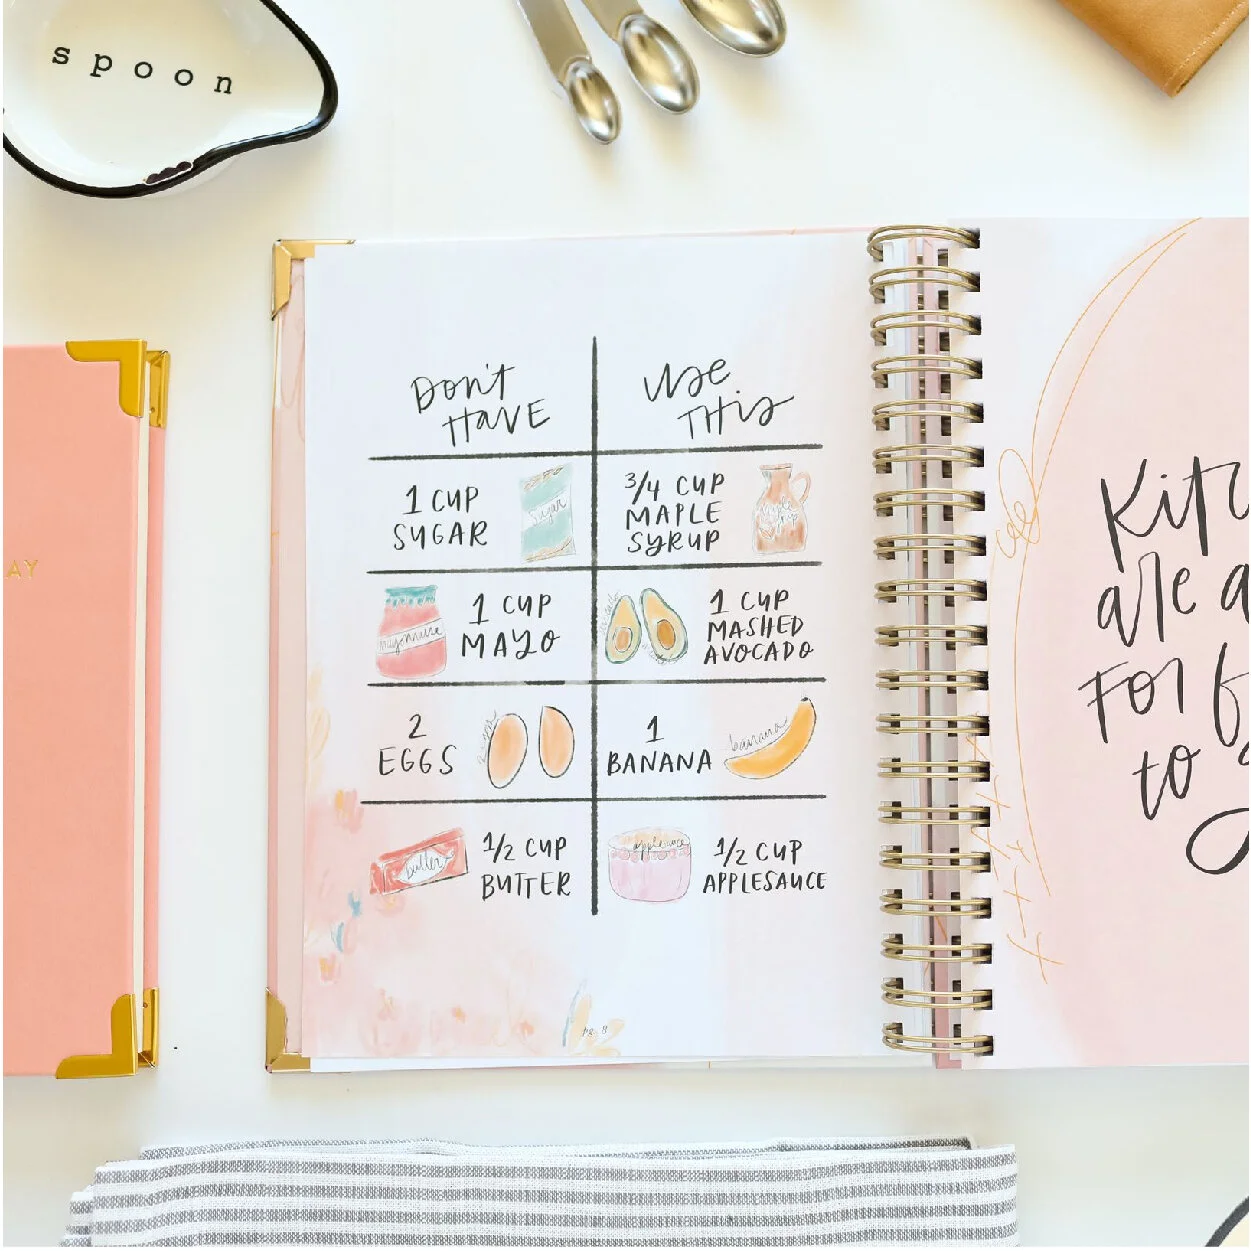 spoon
AY
Don't
HAVE
Use
THis
1 CUP
SUGAR
sugar
3/4 CUP
MAPLE
SYRUP
mayonnaise
1 CUP
MAYO
1 CUP
MASHED
AVOCADO
2
EGGS
1
BANANA
banana
butter
1/2 CUP
BUTTER
applesauce
1/2 CUP
APPLESAUCE
pg. 8
Kitc
are a
For
to